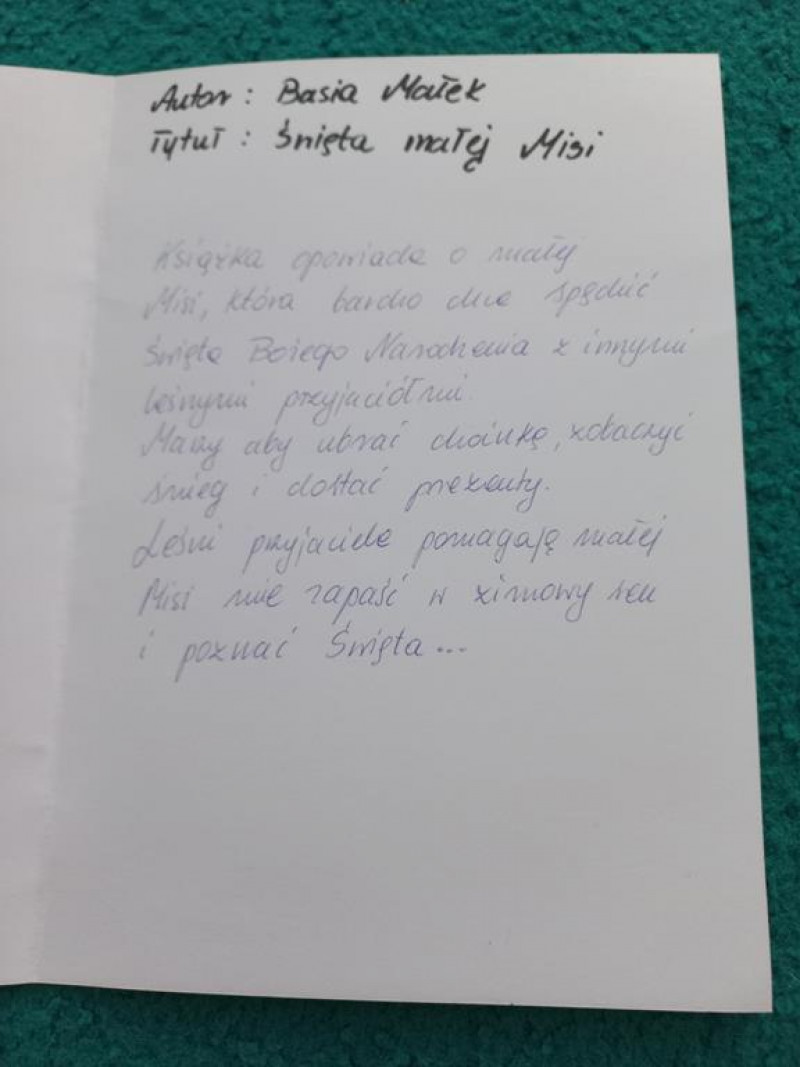 Autor : Basia Małek
Tytuł : Święta małej Misi
Książka opowiada o małej
Misi, która bardzo chce spędzić
Święta Bożego Narodzenia z innymi
leśnymi przyjaciółmi.
Marzy aby ubrać choinkę, zobaczyć
śnieg i dostać prezenty.
Leśni przyjaciele pomagają małej
Misi nie zapaść w zimowy sen
i poznać Święta...